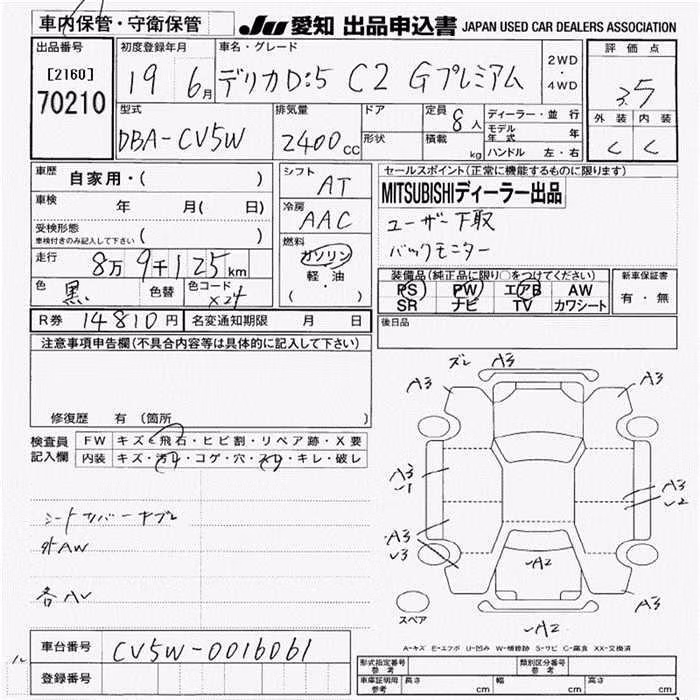 車内保管・守衛保管 JU 愛知 出品申込書 JAPAN USED CAR DEALERS ASSOCIATION
出品番号 [2160] 70210
初度登録年月 19 6月
車名・グレード デリカD:5 C2 Gプレミアム
2WD・4WD
評価点 3.5
外装 く 内装 く
型式 DBA-CV5W
排気量 2400cc
ドア 形状
定員 8人 積載 kg
ディーラー・並行
モデル年式 年
ハンドル 左・右
車歴 自家用・( )
車検 年 月( 日)
受検形態 車検付きのみ記入して下さい ( )
走行 8万9千125km
色 黒 色替 色コード X24
シフト AT
冷房 AAC
燃料 ガソリン 軽・油 ( ・ )
セールスポイント(正常に機能するものに限ります)
MITSUBISHIディーラー出品
ユーザー下取
バックモニター
装備品(純正品に限り○をつけてください)
PS PW エアB AW
SR ナビ TV カワシート
新車保証書 有・無
後日品
R券 14810円 名変通知期限 月 日
注意事項申告欄(不具合内容等は具体的に記入して下さい)
修復歴 有 (箇所 )
検査員記入欄
FW キズ・飛石・ヒビ割・リペア跡・X要
内装 キズ・汚れ・コゲ・穴・スレ・キレ・破レ
シートカバーヤブレ
外AW
各AU
ズレ A3
A3 A3
A3 U1
A3 U2
A3 U3
UA2
A3
UA2
スペア
A-キズ E-エクボ U-凹み W-補修跡 S-サビ C-腐食 XX-交換済
車台番号 CV5W-0016061
登録番号
形式指定番号 参考 類別区分番号 参考
車庫証明用 参考 長さ cm 幅 cm 高さ cm